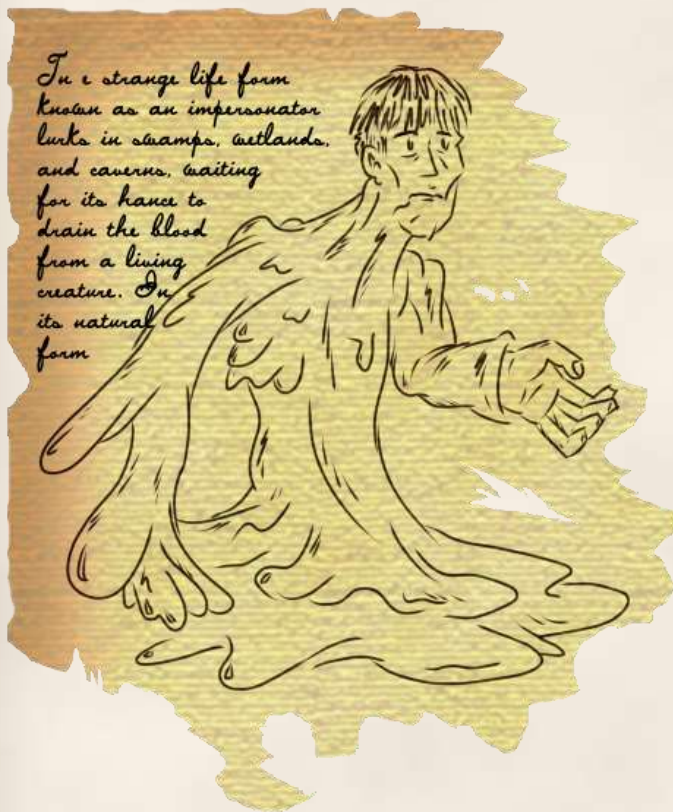 In e strange life form
known as an impersonator
lurks in swamps, wetlands,
and caverns, waiting
for its hance to
drain the blood
from a living
creature. In
its natural
form